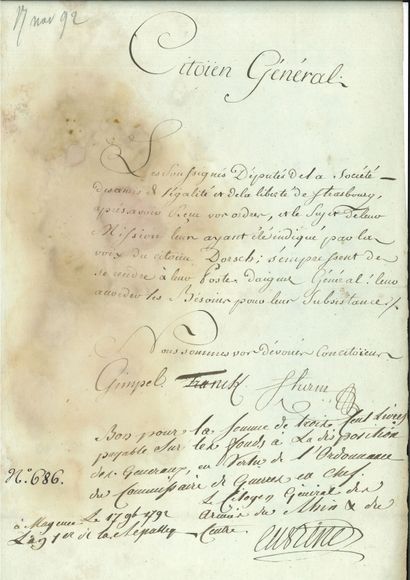 17 nov 92
Citoïen Général.
Les Soussignés Députés de la Société
des amis de l'égalité et de la liberté de Strasbourg,
après avoir reçu vos ordres, et le Sujet de leur
Mission leur ayant été indiqué par la
voix du citoien Dorsch; s'empressent de
se rendre à leur Poste daignés Général! leur
accorder les Besoins pour leur Subsistance
Nous sommes vos dévoués Concitoïens
Gimpel
Bon pour la somme de trois Cent Livres
payable Sur les fonds à La disposition
des Generaux, en Vertu de L'Ordonnance
du Commissaire de Guerres en chef
N.° 686.
Le Citoyen Général des
à Mayence Le 17 9b 1792
Armées du Rhin & du
L'an 1er de la République
Centre
Custine